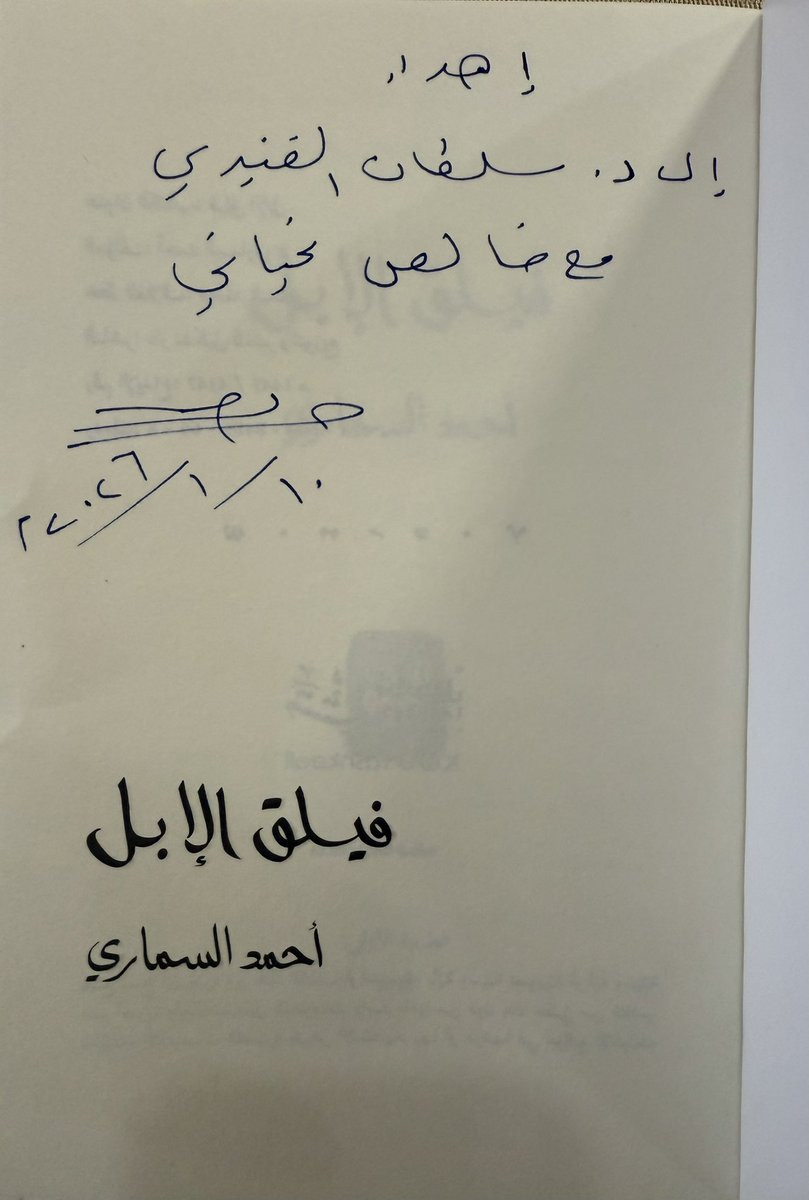 إهداء
إلى د. سلطان القنيدي
مع خالص تحياتي
١٠/١/٢٠٢٦
فيلق الإبل
أحمد السماري